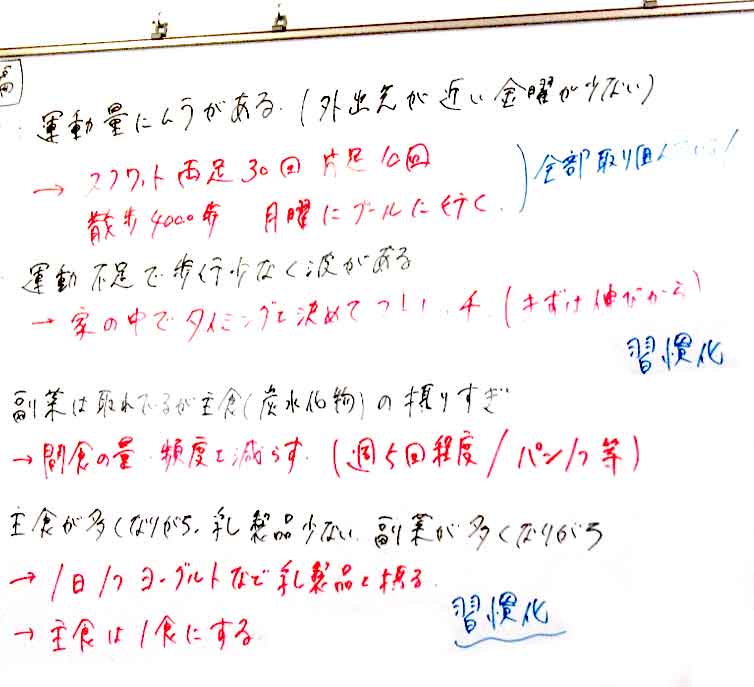 運動量にムラがある。(外出先が近い金曜が少ない)
→ スクワット 両足30回 片足10回
全部取り組
散歩4000歩 月曜にプールに行く。
運動不足で歩行少なく波がある
→ 家の中でタイミングを決めて (まずは伸びから)
習慣化
副菜は取れてるが主食(炭水化物)の摂りすぎ
→ 間食の量・頻度を減らす。(週5回程度/パン1つ等)
主食が多くなりがち、乳製品少ない、副菜が多くなりがち
→ 1日1つヨーグルトなど乳製品を摂る。
→ 主食は1食にする
習慣化